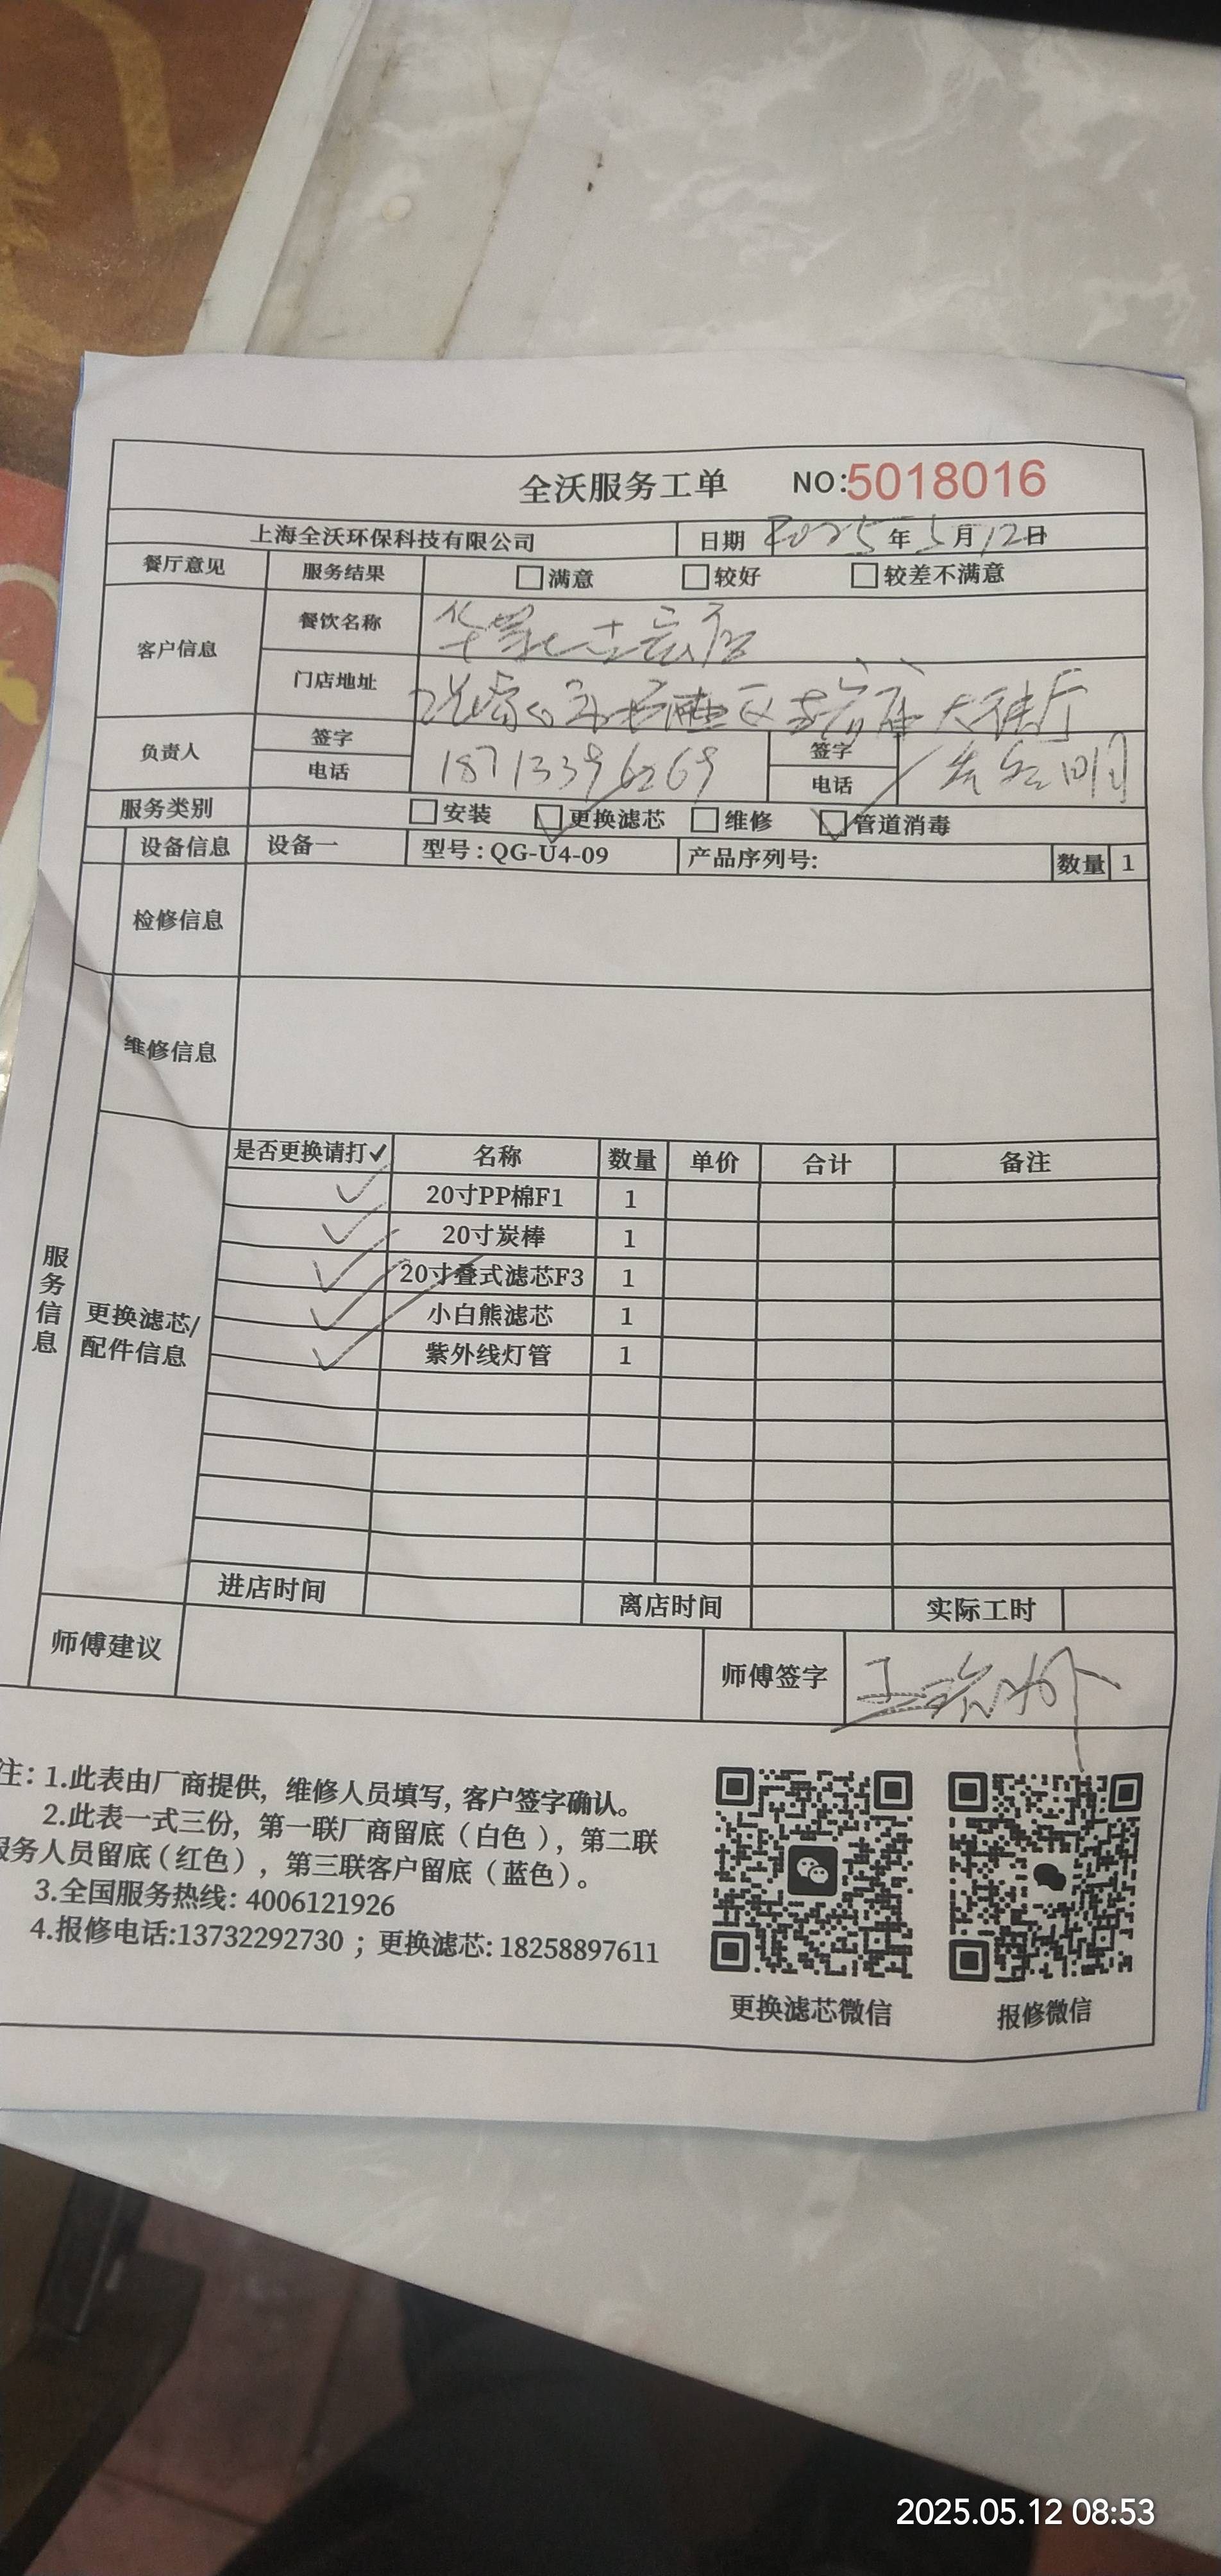 全沃服务工单 NO:5018016
上海全沃环保科技有限公司 日期 2025年5月12日
餐厅意见 服务结果 满意 较好 较差不满意
客户信息 餐饮名称
门店地址
负责人 签字 签字
电话 18713396269 电话
服务类别 安装 更换滤芯 维修 管道消毒
设备信息 设备一 型号:QG-U4-09 产品序列号: 数量 1
检修信息
维修信息
服务信息
更换滤芯/
配件信息
是否更换请打✓ 名称 数量 单价 合计 备注
✓ 20寸PP棉F1 1
✓ 20寸炭棒 1
✓ 20寸叠式滤芯F3 1
✓ 小白熊滤芯 1
✓ 紫外线灯管 1
进店时间 离店时间 实际工时
师傅建议 师傅签字
注: 1.此表由厂商提供, 维修人员填写, 客户签字确认。
2.此表一式三份, 第一联厂商留底(白色), 第二联
服务人员留底(红色), 第三联客户留底(蓝色)。
3.全国服务热线: 4006121926
4.报修电话:13732292730 ; 更换滤芯: 18258897611
更换滤芯微信 报修微信
2025.05.12 08:53